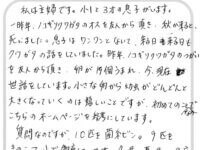 私は主婦です。小1と3才の息子がいます。
一昨年、ノコギリクワガタのオスを友人から頂き、秋が来ると、
死にました。息子はワンワンと泣いて、来る日も来る日も
クワガタの話をしていました。昨年、ノコギリクワガタのつがい
を友人から頂き、卵が何個うまれ、今、現在
世話をしています。小さな卵から幼虫がどんどんと
大きくなっていくのは嬉しいことですが、初めてのことで
こちらのホームページを拝見しています。
質問なのですが、10匹を菌糸ビン。9匹を